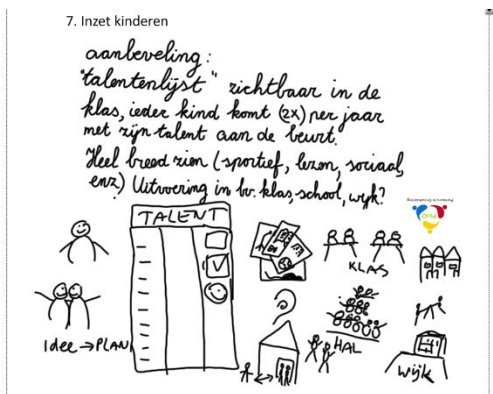 7. Inzet kinderen
aanbeveling:
"talentenlijst" zichtbaar in de
klas, ieder kind komt (2x) per jaar
met zijn talent aan de beurt.
Heel breed zien (sportief, lezen, sociaal,
enz) Uitvoering in bv. klas, school, wijk?
TALENT
KLAS
Idee → PLAN
HAL
Wijk